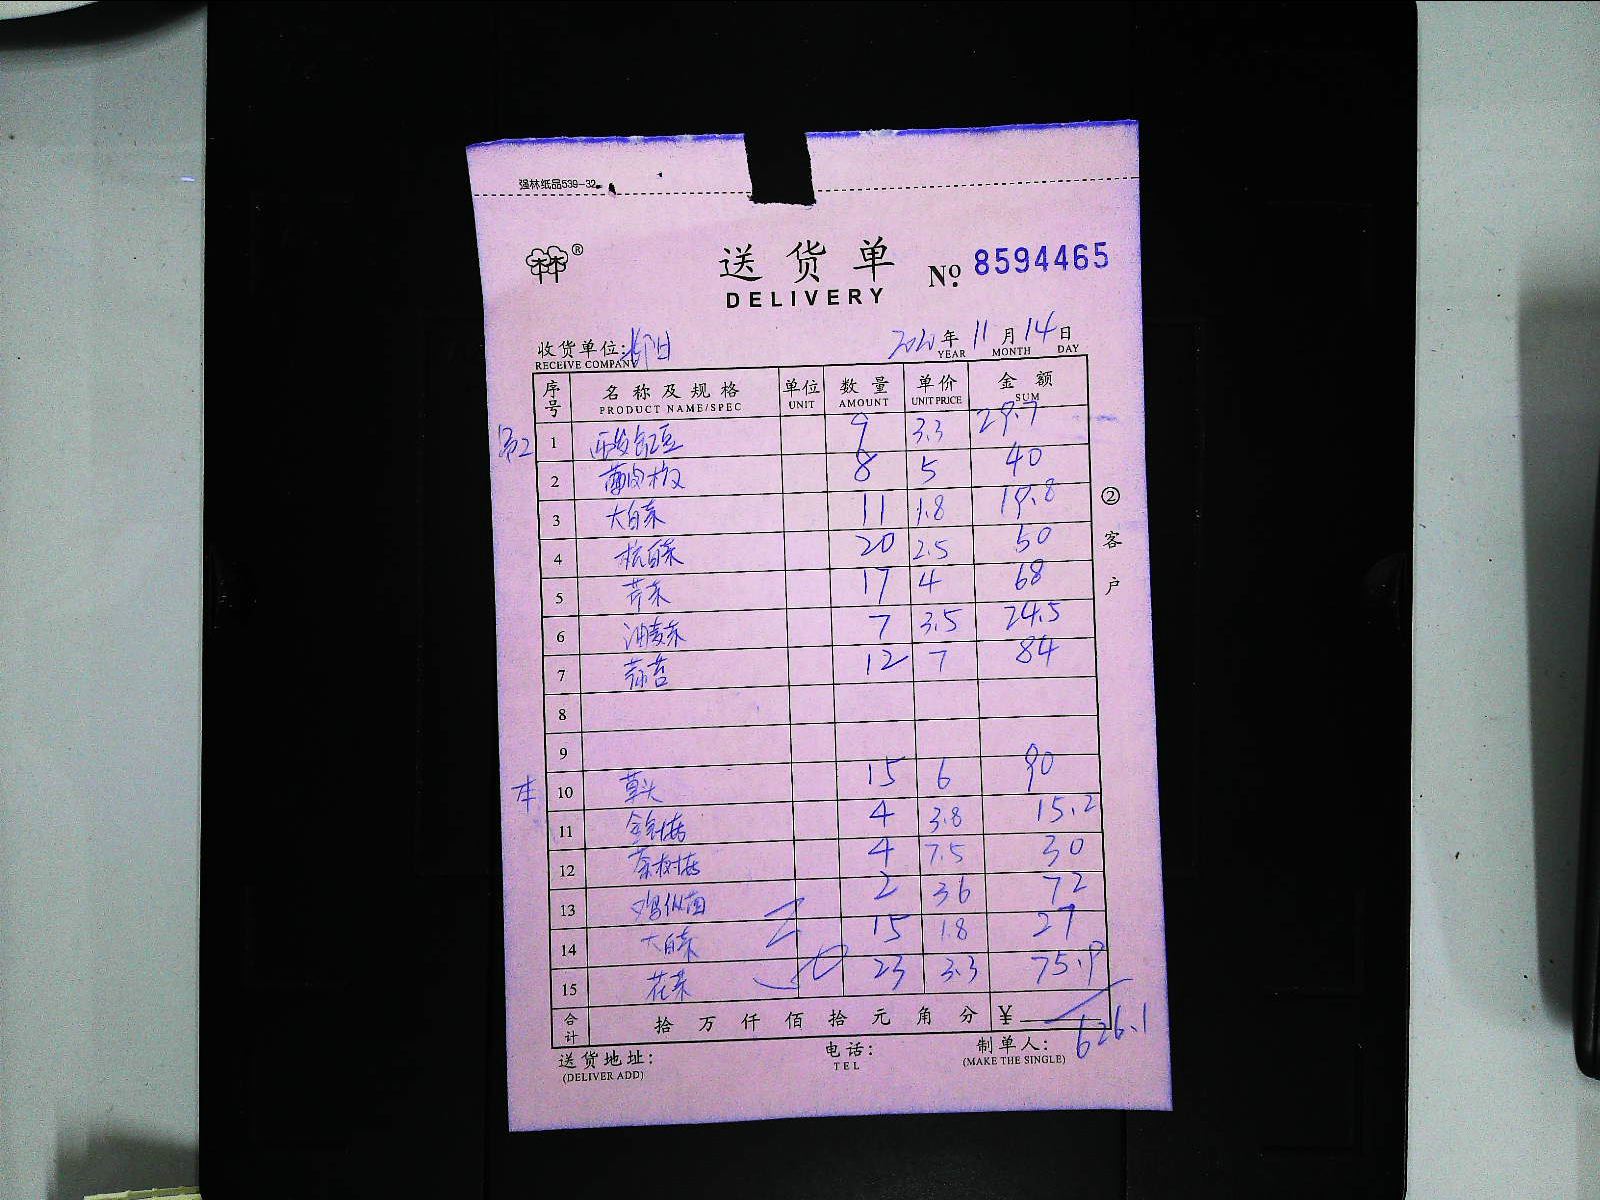 强林纸品539-32
林林®
送货单 No. 8594465
DELIVERY
收货单位: 2020年11月14日
RECEIVE COMPANY YEAR MONTH DAY
序号 名称及规格 单位 数量 单价 金额
PRODUCT NAME/SPEC UNIT AMOUNT UNIT PRICE SUM
1 9 3.3 29.7
2 薄皮椒 8 5 40
3 大白菜 11 1.8 19.8
4 杭白菜 20 2.5 50
5 芹菜 17 4 68
6 油麦菜 7 3.5 24.5
7 蒜苔 12 7 84
8
9
本 10 草头 15 6 90
11 金针菇 4 3.8 15.2
12 茶树菇 4 7.5 30
13 鸡枞菌 2 36 72
14 大白菜 15 1.8 27
15 花菜 23 3.3 75.9
合计 拾万仟佰拾元角分 ¥ 626.1
送货地址: 电话: 制单人:
(DELIVER ADD) TEL (MAKE THE SINGLE)
②客户